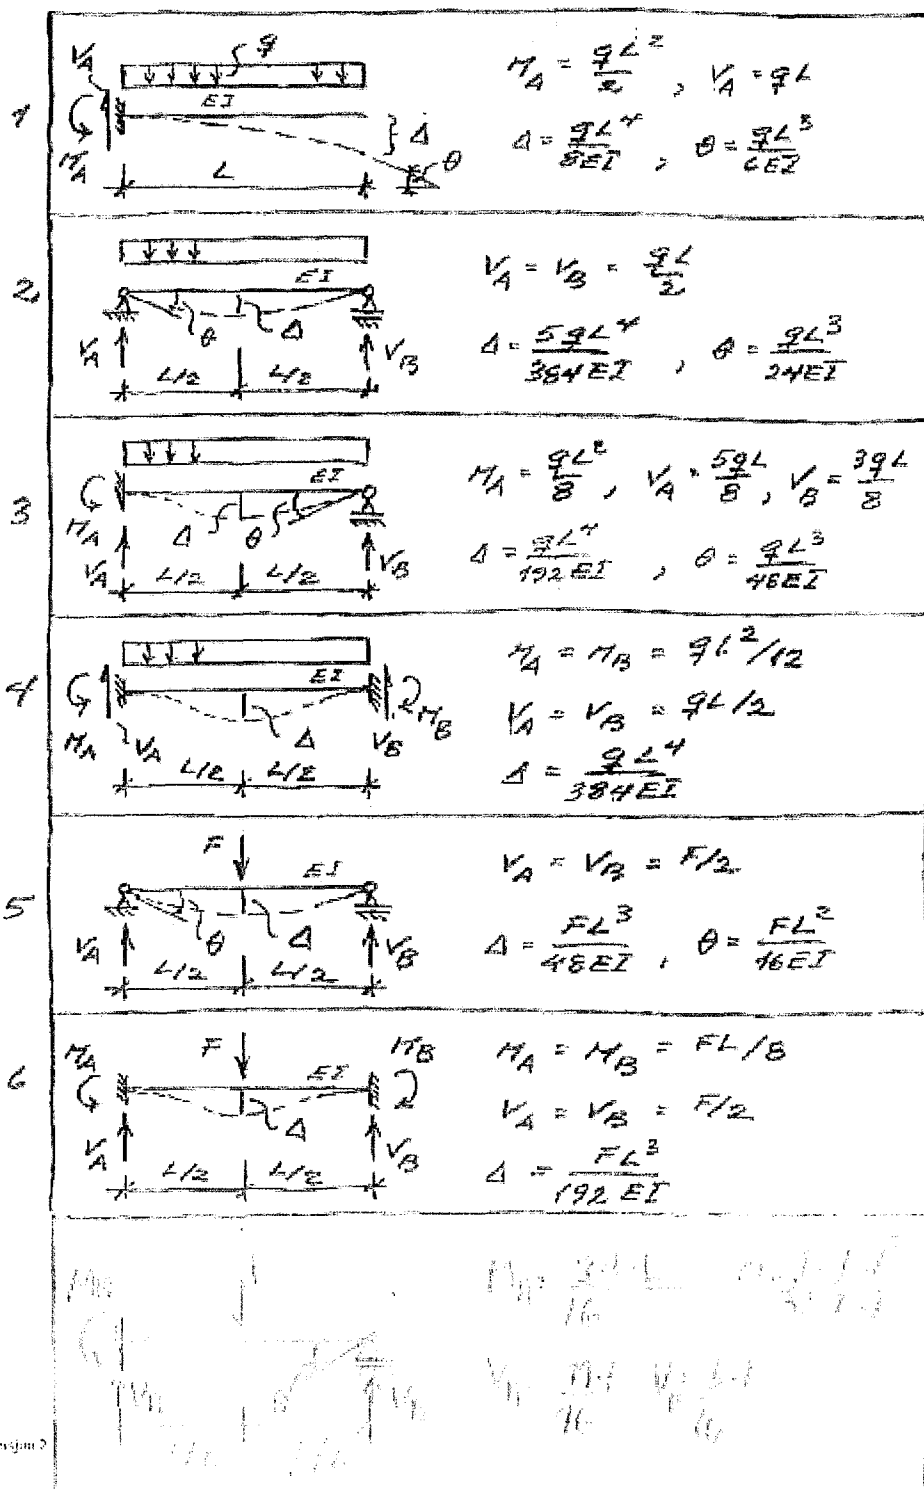 1
V_A
q
EI
Δ
M_A
L
θ
M_A = qL²/2 , V_A = qL
Δ = qL⁴/8EI , θ = qL³/6EI
2
EI
θ Δ
V_A V_B
L/2 L/2
V_A = V_B = qL/2
Δ = 5qL⁴/384EI , θ = qL³/24EI
3
EI
M_A Δ θ
V_A L/2 L/2 V_B
M_A = qL²/8 , V_A = 5qL/8 , V_B = 3qL/8
Δ = qL⁴/192EI , θ = qL³/48EI
4
EI
M_B
M_A V_A Δ V_B
L/2 L/2
M_A = M_B = qL²/12
V_A = V_B = qL/2
Δ = qL⁴/384EI
5
F
EI
θ Δ
V_A V_B
L/2 L/2
V_A = V_B = F/2
Δ = FL³/48EI , θ = FL²/16EI
6
M_A F M_B
EI
Δ
V_A V_B
L/2 L/2
M_A = M_B = FL/8
V_A = V_B = F/2
Δ = FL³/192EI